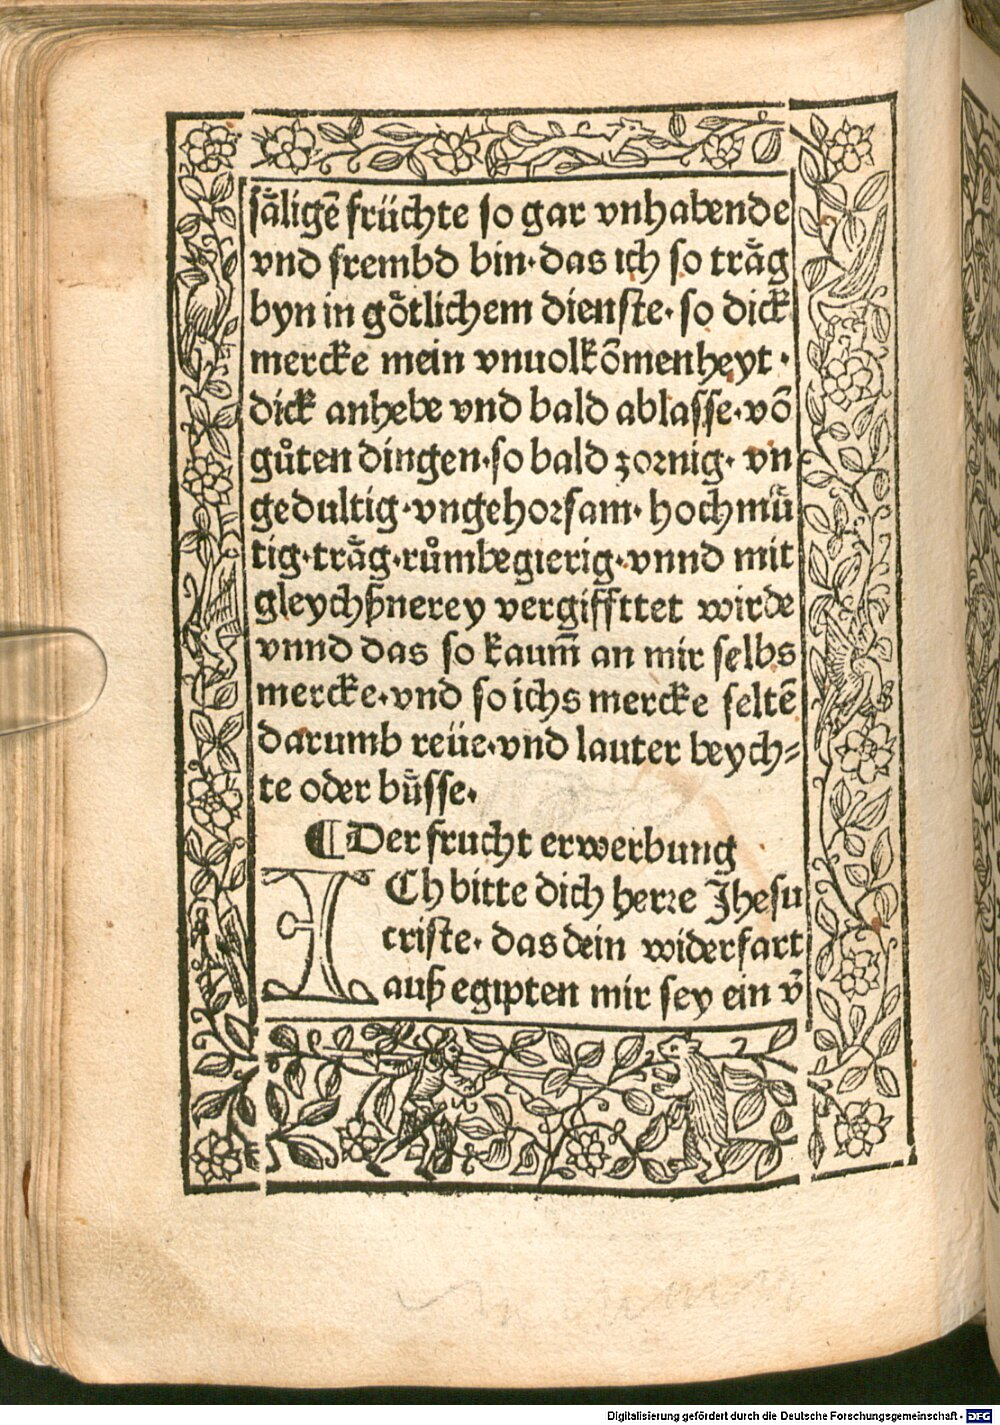 säligē früchte so gar vnhabende
vnd frembd bin·das ich so träg
byn in gǒtlichem dienste· so dick
mercke mein vnuolkōmenheyt·
dick anhebe vnd bald ablasse·vō
gůten dingen·so bald zornig· vn
gedultig·vngehorsam· hochmuͤ
tig·träg·růmbegierig·vnnd mit
gleychſznerey vergiffttet wirde
vnnd das so kaum̄ an mir selbs
mercke·vnd so ichs mercke seltē
darumb reüe·vnd lauter beych⸗
te oder buͤsse·
¶ Der frucht erwerbung
ICh bitte dich herre Jhesu
criste· das dein widerfart
auß egipten mir sey ein v̄
Digitalisierung gefördert durch die Deutsche Forschungsgemeinschaft - DFG